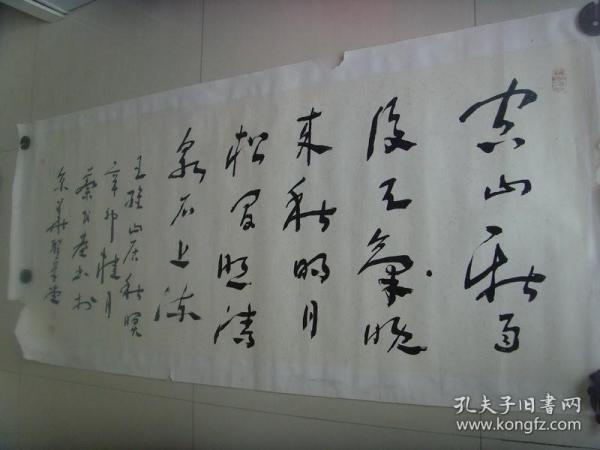 空山新雨
后天气晚
来秋明月
松间照清
泉石上流
王维山居秋暝
辛卯桂月
书于
京华
孔夫子旧书网
www.kongfz.com